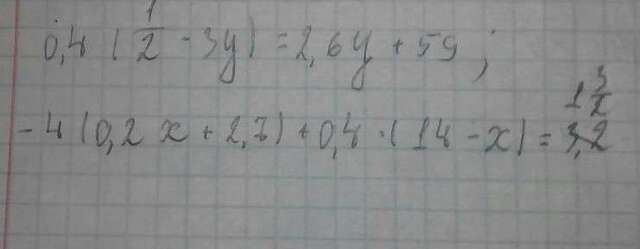 0,4 (1/2 - 3y) = 2,6y + 59;
1 3/2
-4 (0,2x + 2,7) + 0,4 · (14 - x) = 3,2